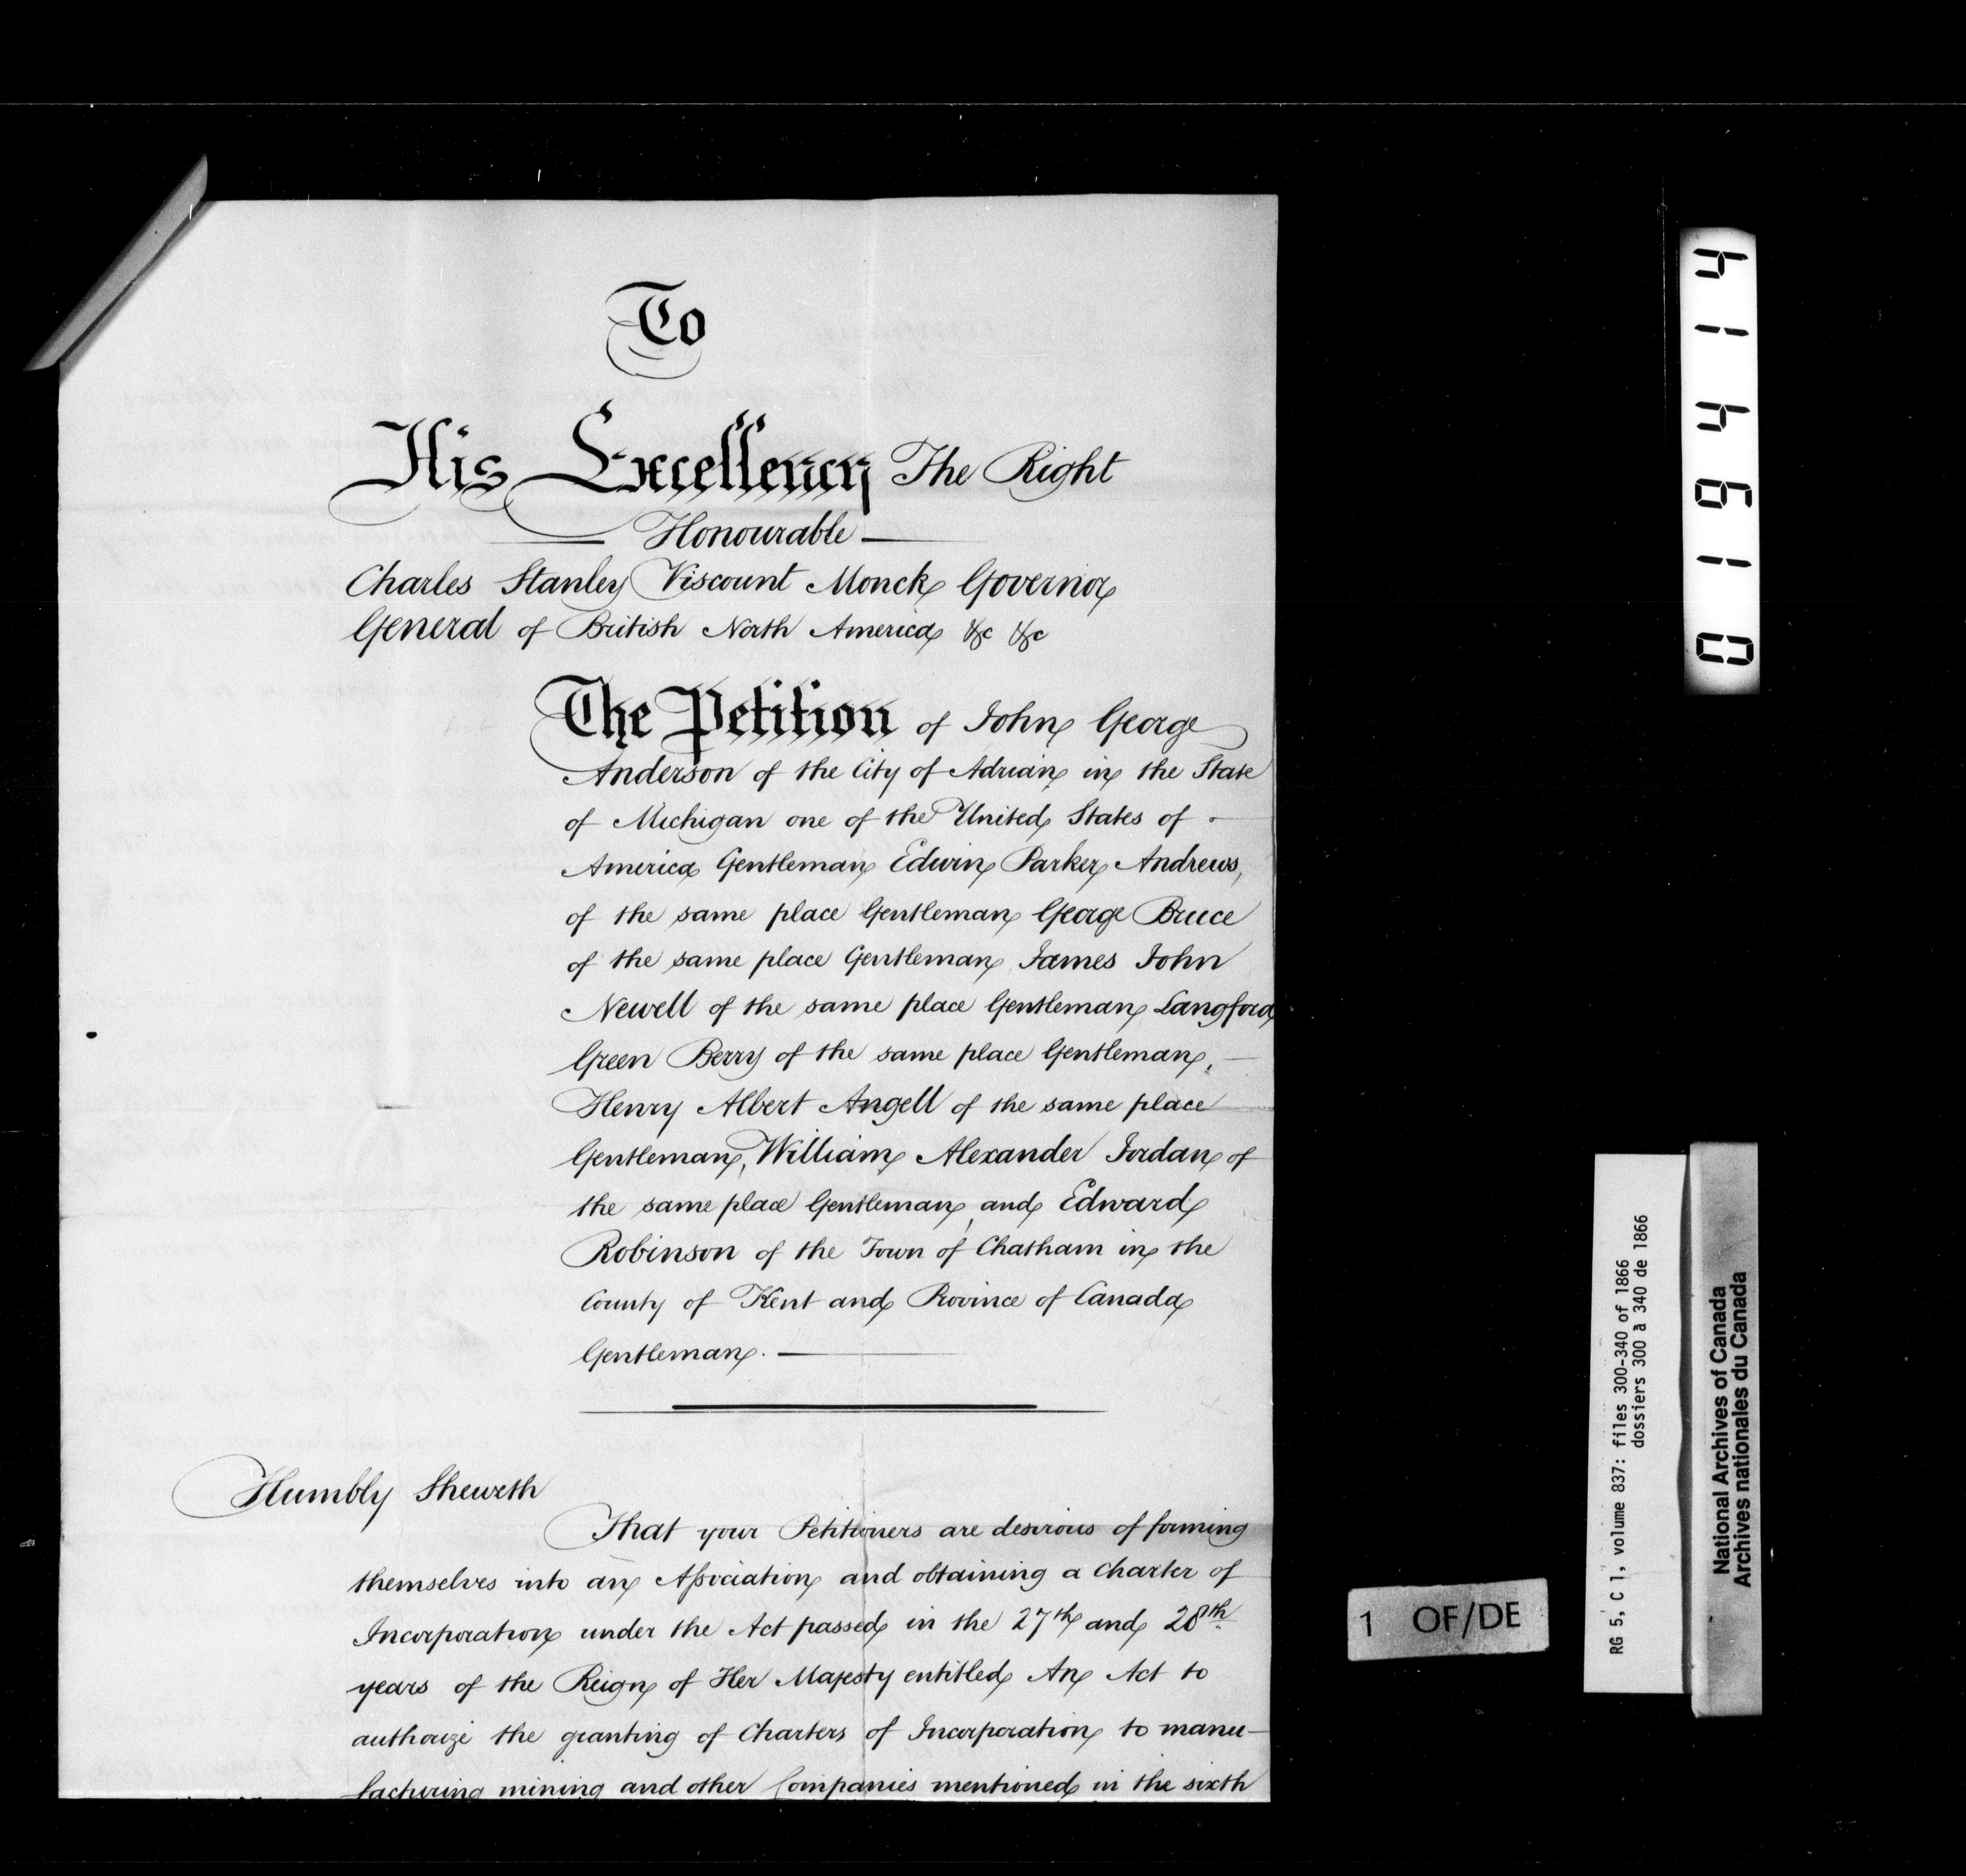 To
His Excellency The Right
Honourable
Charles Stanley Viscount Monck Governor
General of British North America &c &c
The Petition of John George
Anderson of the City of Adrian in the State
of Michigan one of the United States of
America Gentleman Edwin Parker Andrews,
of the same place Gentleman George Bruce
of the same place Gentleman James John
Newell of the same place Gentleman Langford
Green Berry of the same place Gentleman,
Henry Albert Angell of the same place
Gentleman, William Alexander Jordan of
the same place Gentleman, and Edward
Robinson of the Town of Chatham in the
County of Kent and Province of Canada
Gentleman.
Humbly Sheweth
That your Petitioners are desirous of forming
themselves into an Association and obtaining a Charter of
Incorporation under the Act passed in the 27th and 28th
years of the Reign of Her Majesty entitled An Act to
authorize the granting of Charters of Incorporation to manu-
facturing mining and other Companies mentioned in the sixth
016414
1 OF/DE
RG 5, C 1, volume 837: files 300-340 of 1866
dossiers 300 à 340 de 1866
National Archives of Canada
Archives nationales du Canada